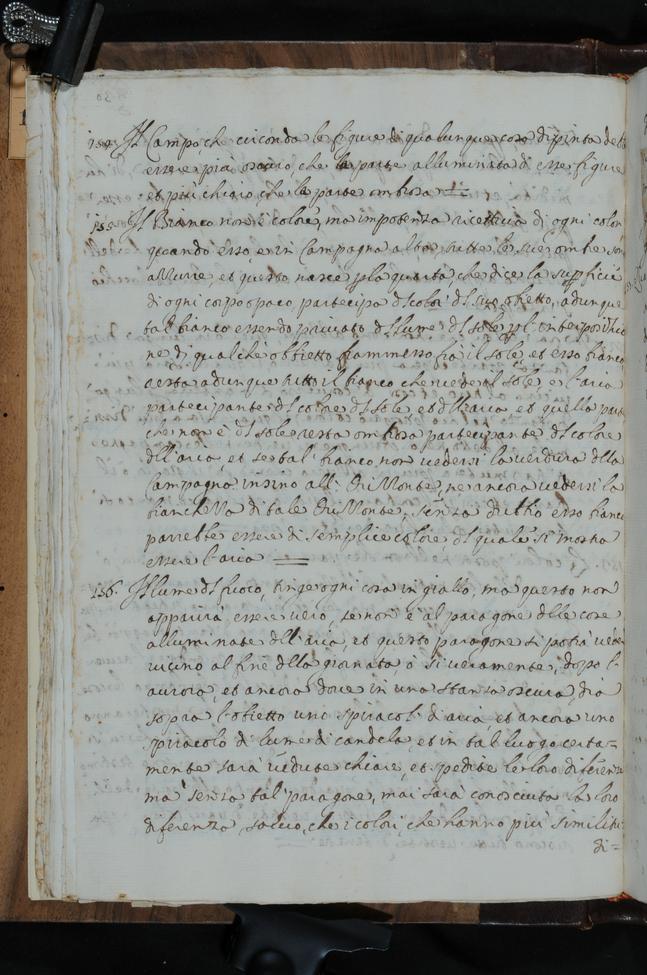 154. Il Campo che circonda le figure di qualunque cosa dipinta de
essere più oscuro che la parte alluminata di esse figure
et più chiaro che la parte ombrosa
155. Il Bianco non è colore, ma impotenza ricettiva di ogni color
quando esso er in Campagna alta, tutte le sue ombre son
azzurre, et questo nasce
di ogni corpo opaco partecipa dl color dl suo obietto, adunque
tal bianco essendo privato dl lume dl sole pl interpositio
ne di qualche obbietto framesso fra il sole, et esso bianco
resta adunque tutto il bianco che vede il sole, et l'aria
partecipante dl colore dl sole et dll'aria et quella part
che non è dl sole resta ombrosa partecipante dl colore
dll'aria, et se tal bianco non vedessi la verdura dlla
Campagna insino all' Orizonte, ne ancora vedessi la
bianchezza di tale Orizonte, senza dubio esso bianco
parrebbe essere di semplice colore, dl quale si mostra
essere l'aria
156. Il lume dl fuoco, tinge ogni cosa in giallo, ma questo non
apparirà essere vero, se non è al paragone dlle cose
alluminate dll'aria, et questo paragone si potrà vede
vicino al fine dlla giornata, o si veramente, dopo l'
aurora, et ancora dove in una stanza oscura, dia
sopra l'obietto uno spiracol: di aria, et ancora uno
spiracolo di lume di candela, et in tal luogo certa=
mente sarà vedute chiare, et spedite le loro diferenz
ma senza tal paragone, mai sarà conosciuta la loro
diferenza, salvo, che i colori che hanno più similitu
di=